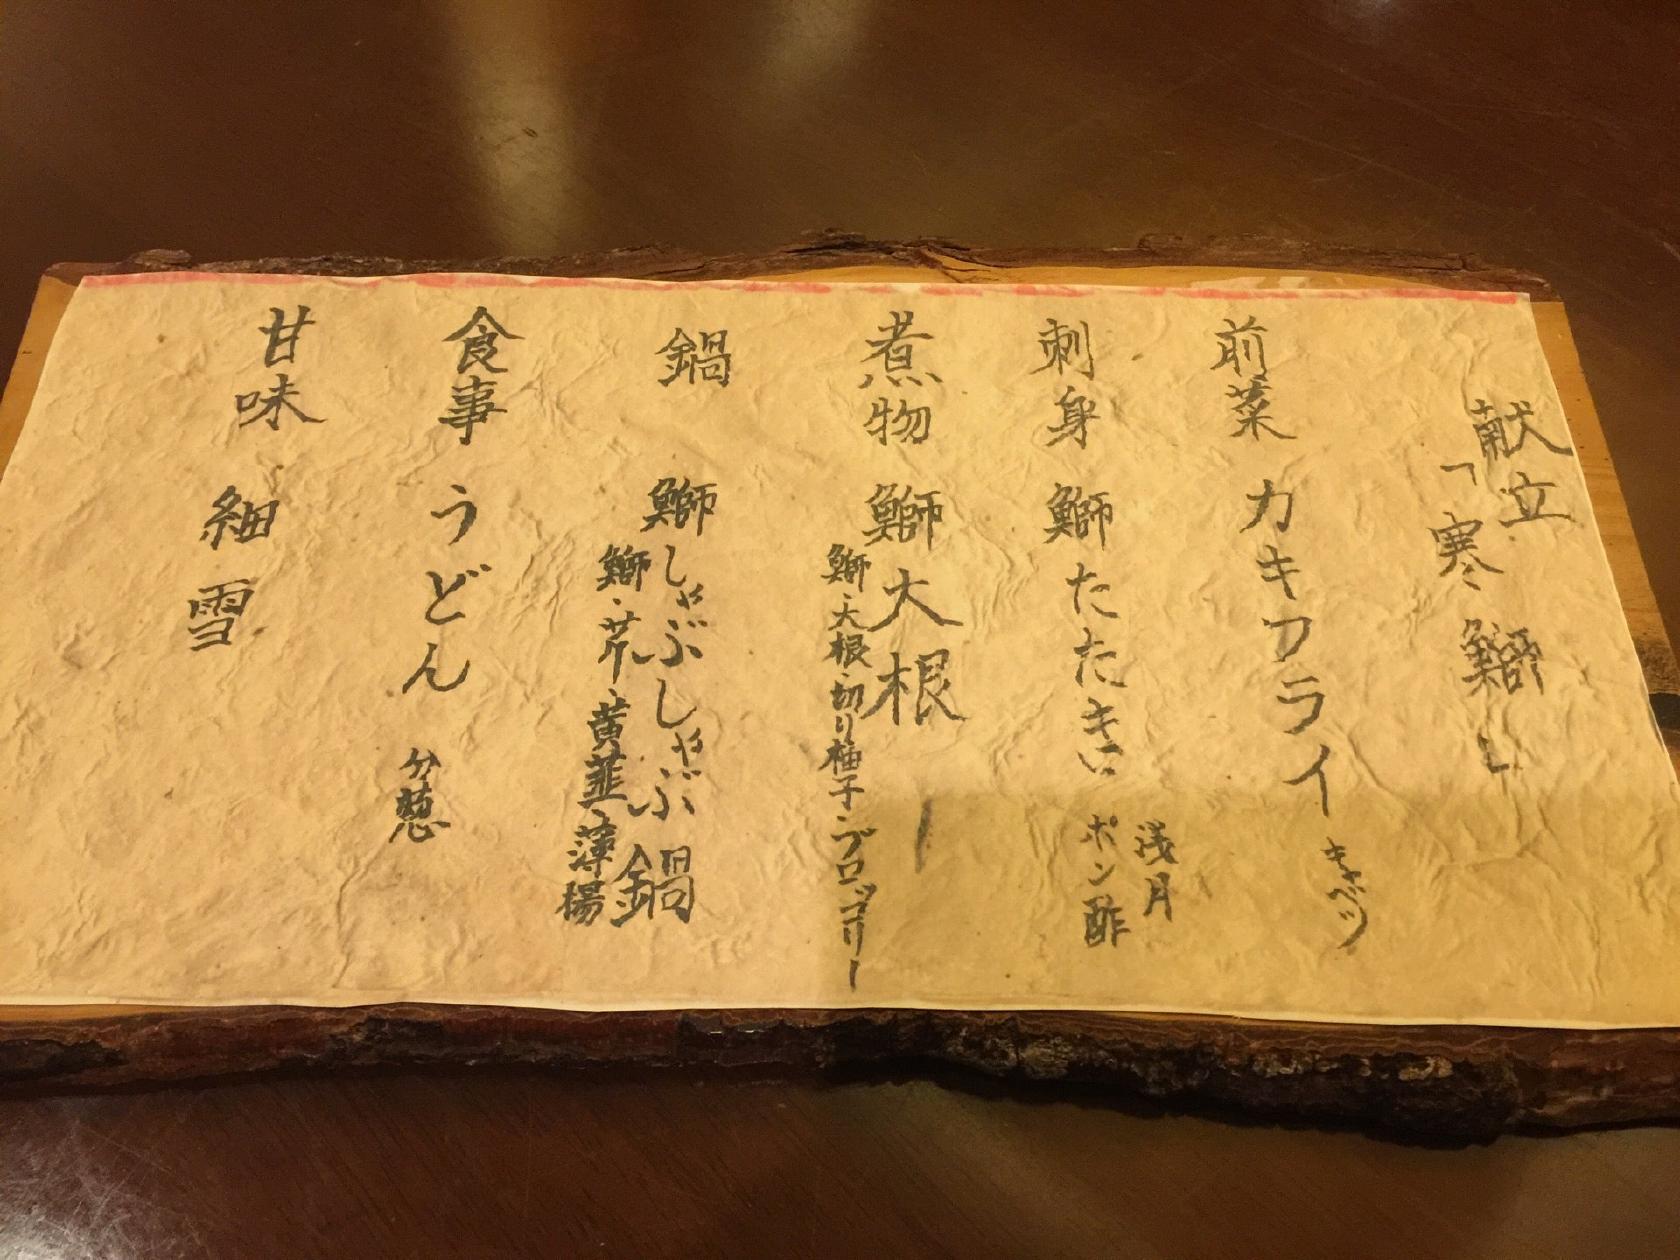 献立
「寒鰤」
前菜 カキフライ キャベツ
刺身 鰤たたき 浅月
ポン酢
煮物 鰤大根
鰤・大根・切り柚子・ブロッコリー
鍋 鰤しゃぶしゃぶ鍋
鰤・芹・黄韮・薄揚
食事 うどん 分葱
甘味 細雪